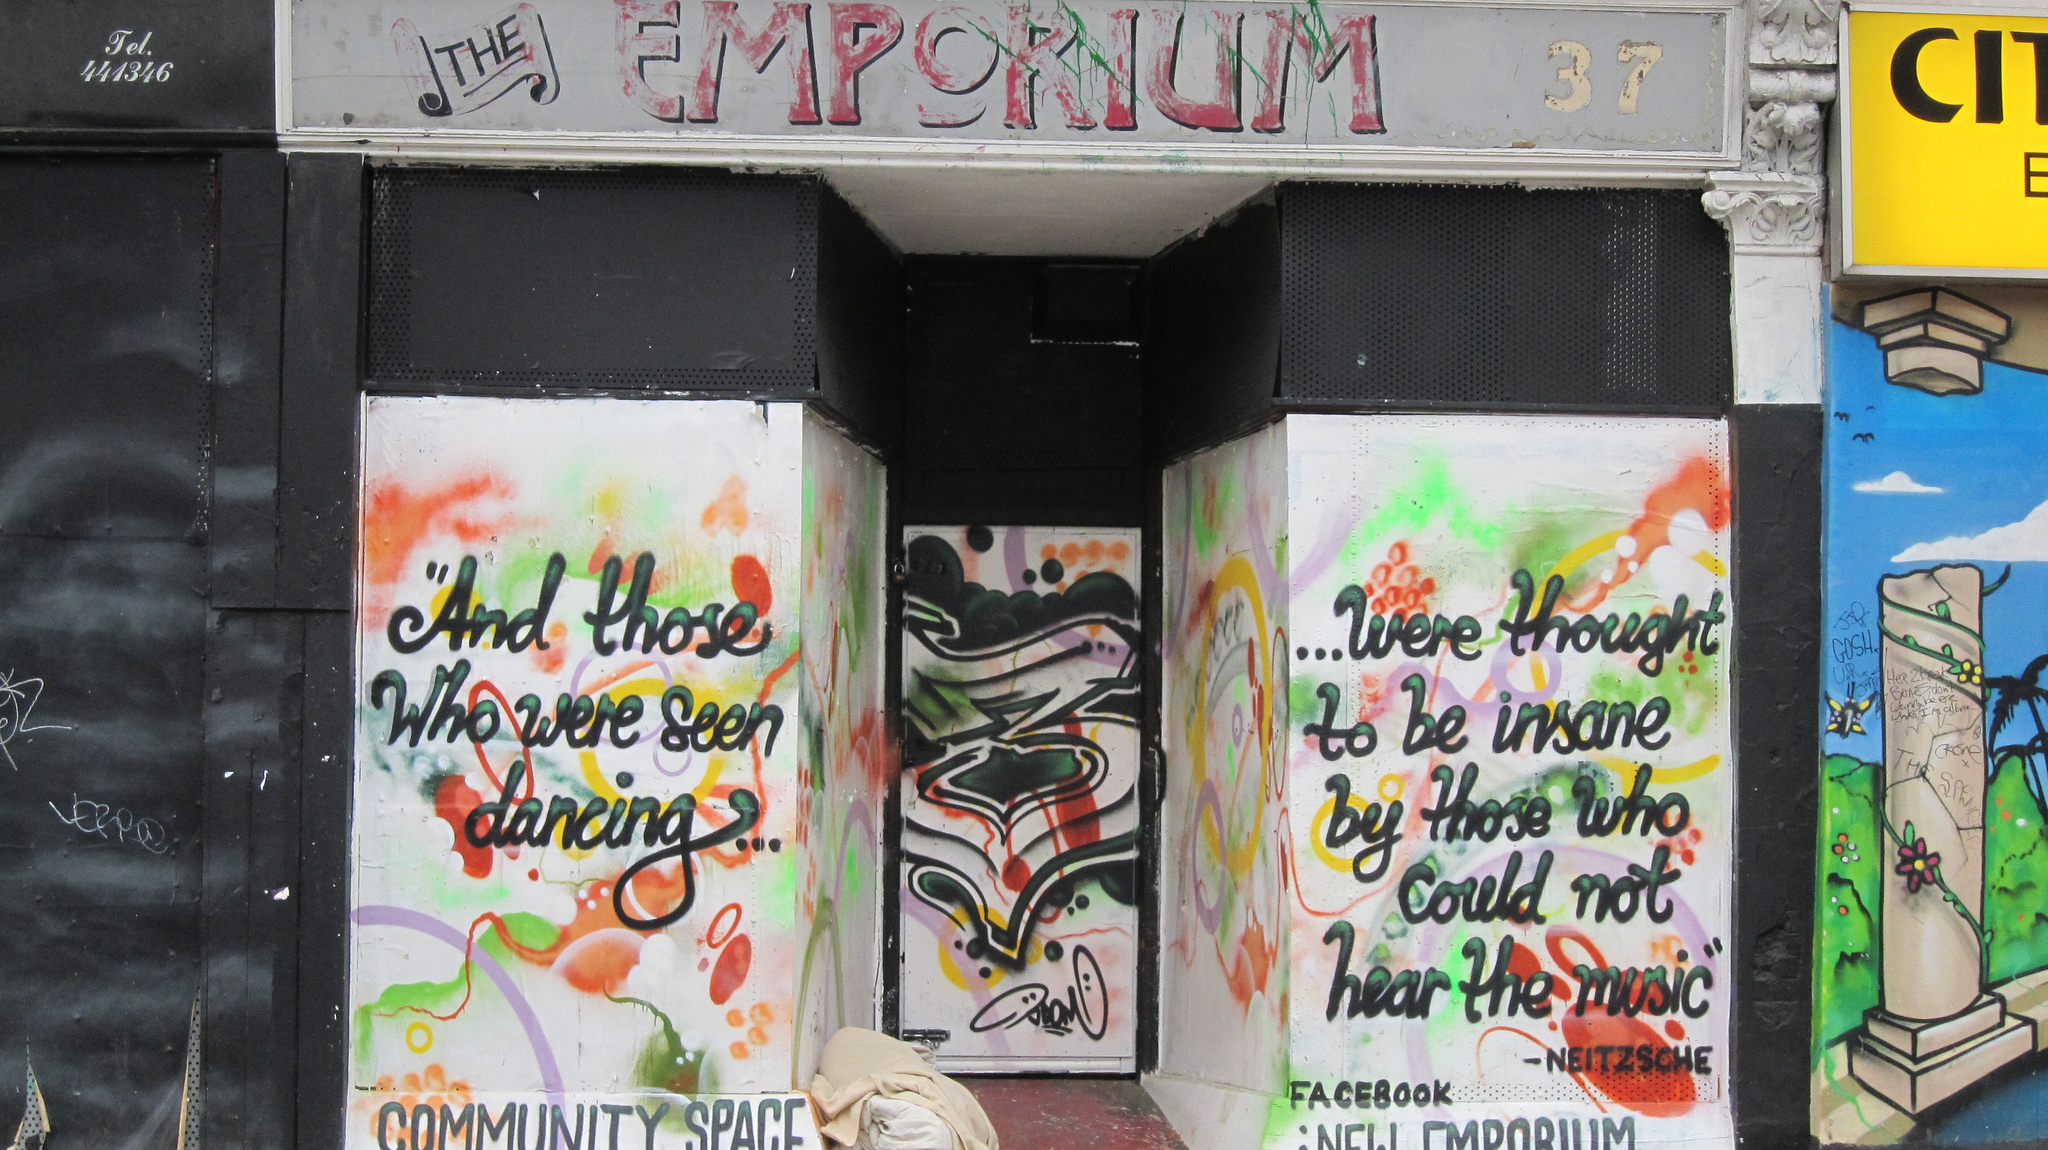 Tel.
441346
THE EMPORIUM 37
CIT
"And those
Who were seen
dancing...
...were thought
to be insane
by those who
could not
hear the music"
-NEITZSCHE
FACEBOOK
: NEW EMPORIUM
COMMUNITY SPACE
GOSH